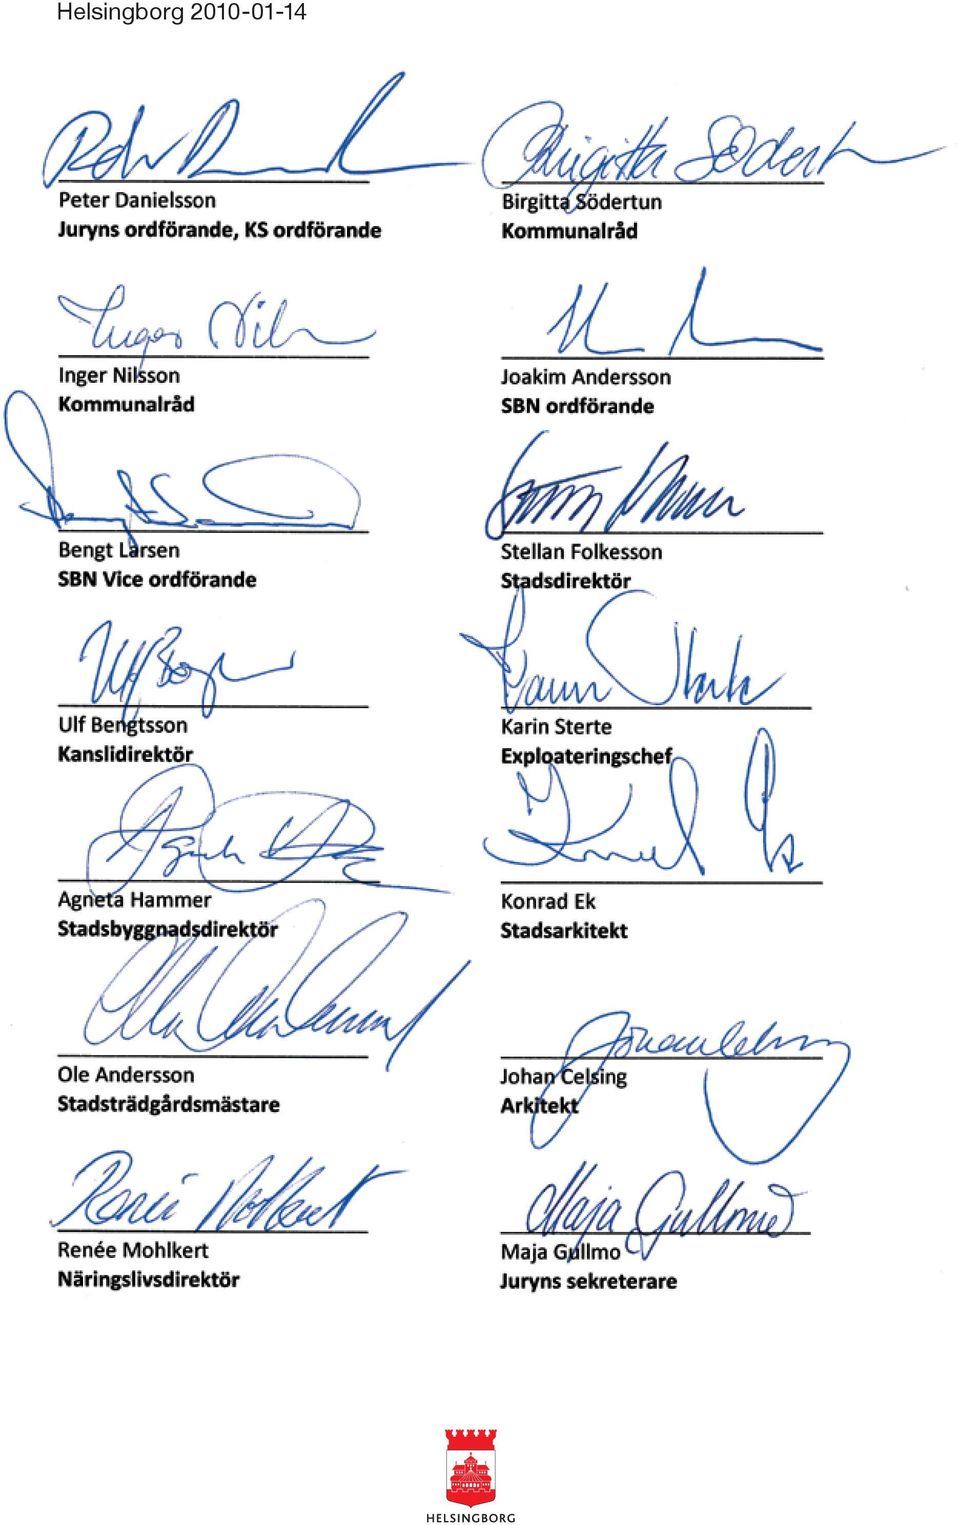 Helsingborg 2010-01-14
Peter Danielsson
Juryns ordförande, KS ordförande
Birgitta Södertun
Kommunalråd
Inger Nilsson
Kommunalråd
Joakim Andersson
SBN ordförande
Bengt Larsen
SBN Vice ordförande
Stellan Folkesson
Stadsdirektör
Ulf Bengtsson
Kanslidirektör
Karin Sterte
Exploateringschef
Agneta Hammer
Stadsbyggnadsdirektör
Konrad Ek
Stadsarkitekt
Ole Andersson
Stadsträdgårdsmästare
Johan Celsing
Arkitekt
Renée Mohlkert
Näringslivsdirektör
Maja Gullmo
Juryns sekreterare
HELSINGBORG